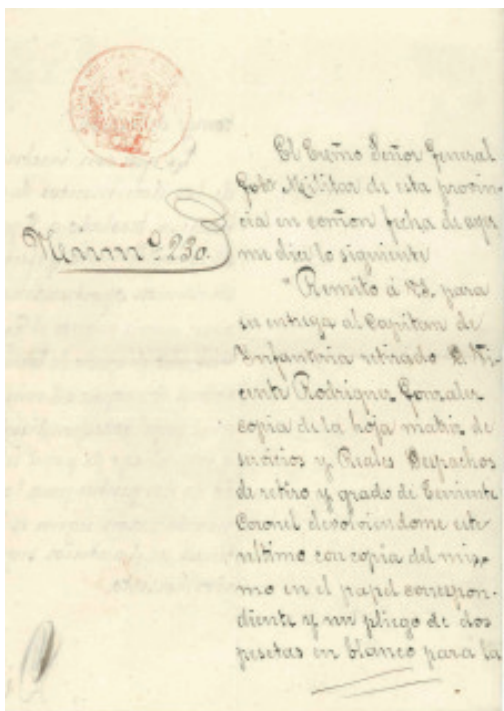 El Exmo Señor General
Gobr Militar de esta provin-
cia en comon fecha de ayer
me dice lo siguiente
Numº 230.
"Remito á VS. para
su entrega al Capitan de
Infanteria retirado D. Vi-
cente Rodriguez Gonzalez
copia de la hoja matriz de
servicios y Reales Despachos
de retiro y grado de Teniente
Coronel devolviendome este
ultimo con copia del mis-
mo en el papel correspon-
diente y un pliego de dos
pesetas en blanco para la